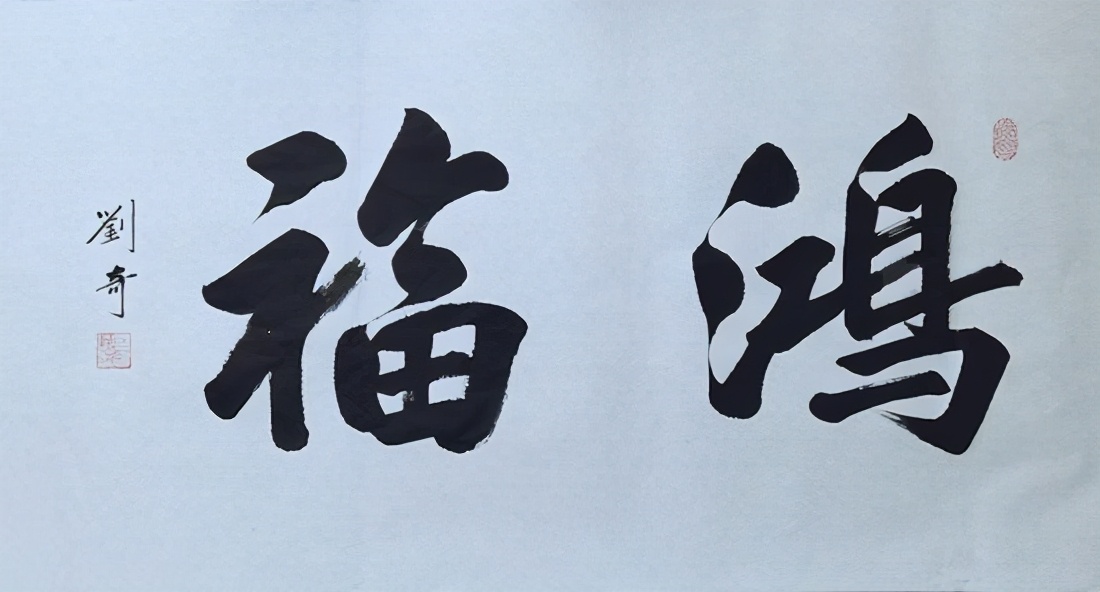 鴻福
劉奇